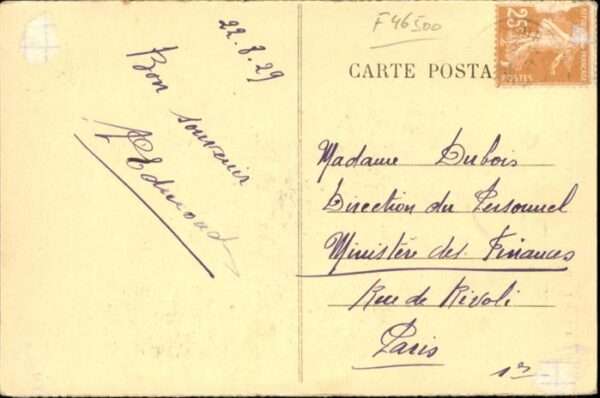 22.8.29
Bon souvenir
Edmond
F 46500
CARTE POSTA
25
POSTES
Madame Dubois
Direction du Personnel
Ministère des Finances
Rue de Rivoli
Paris
1er